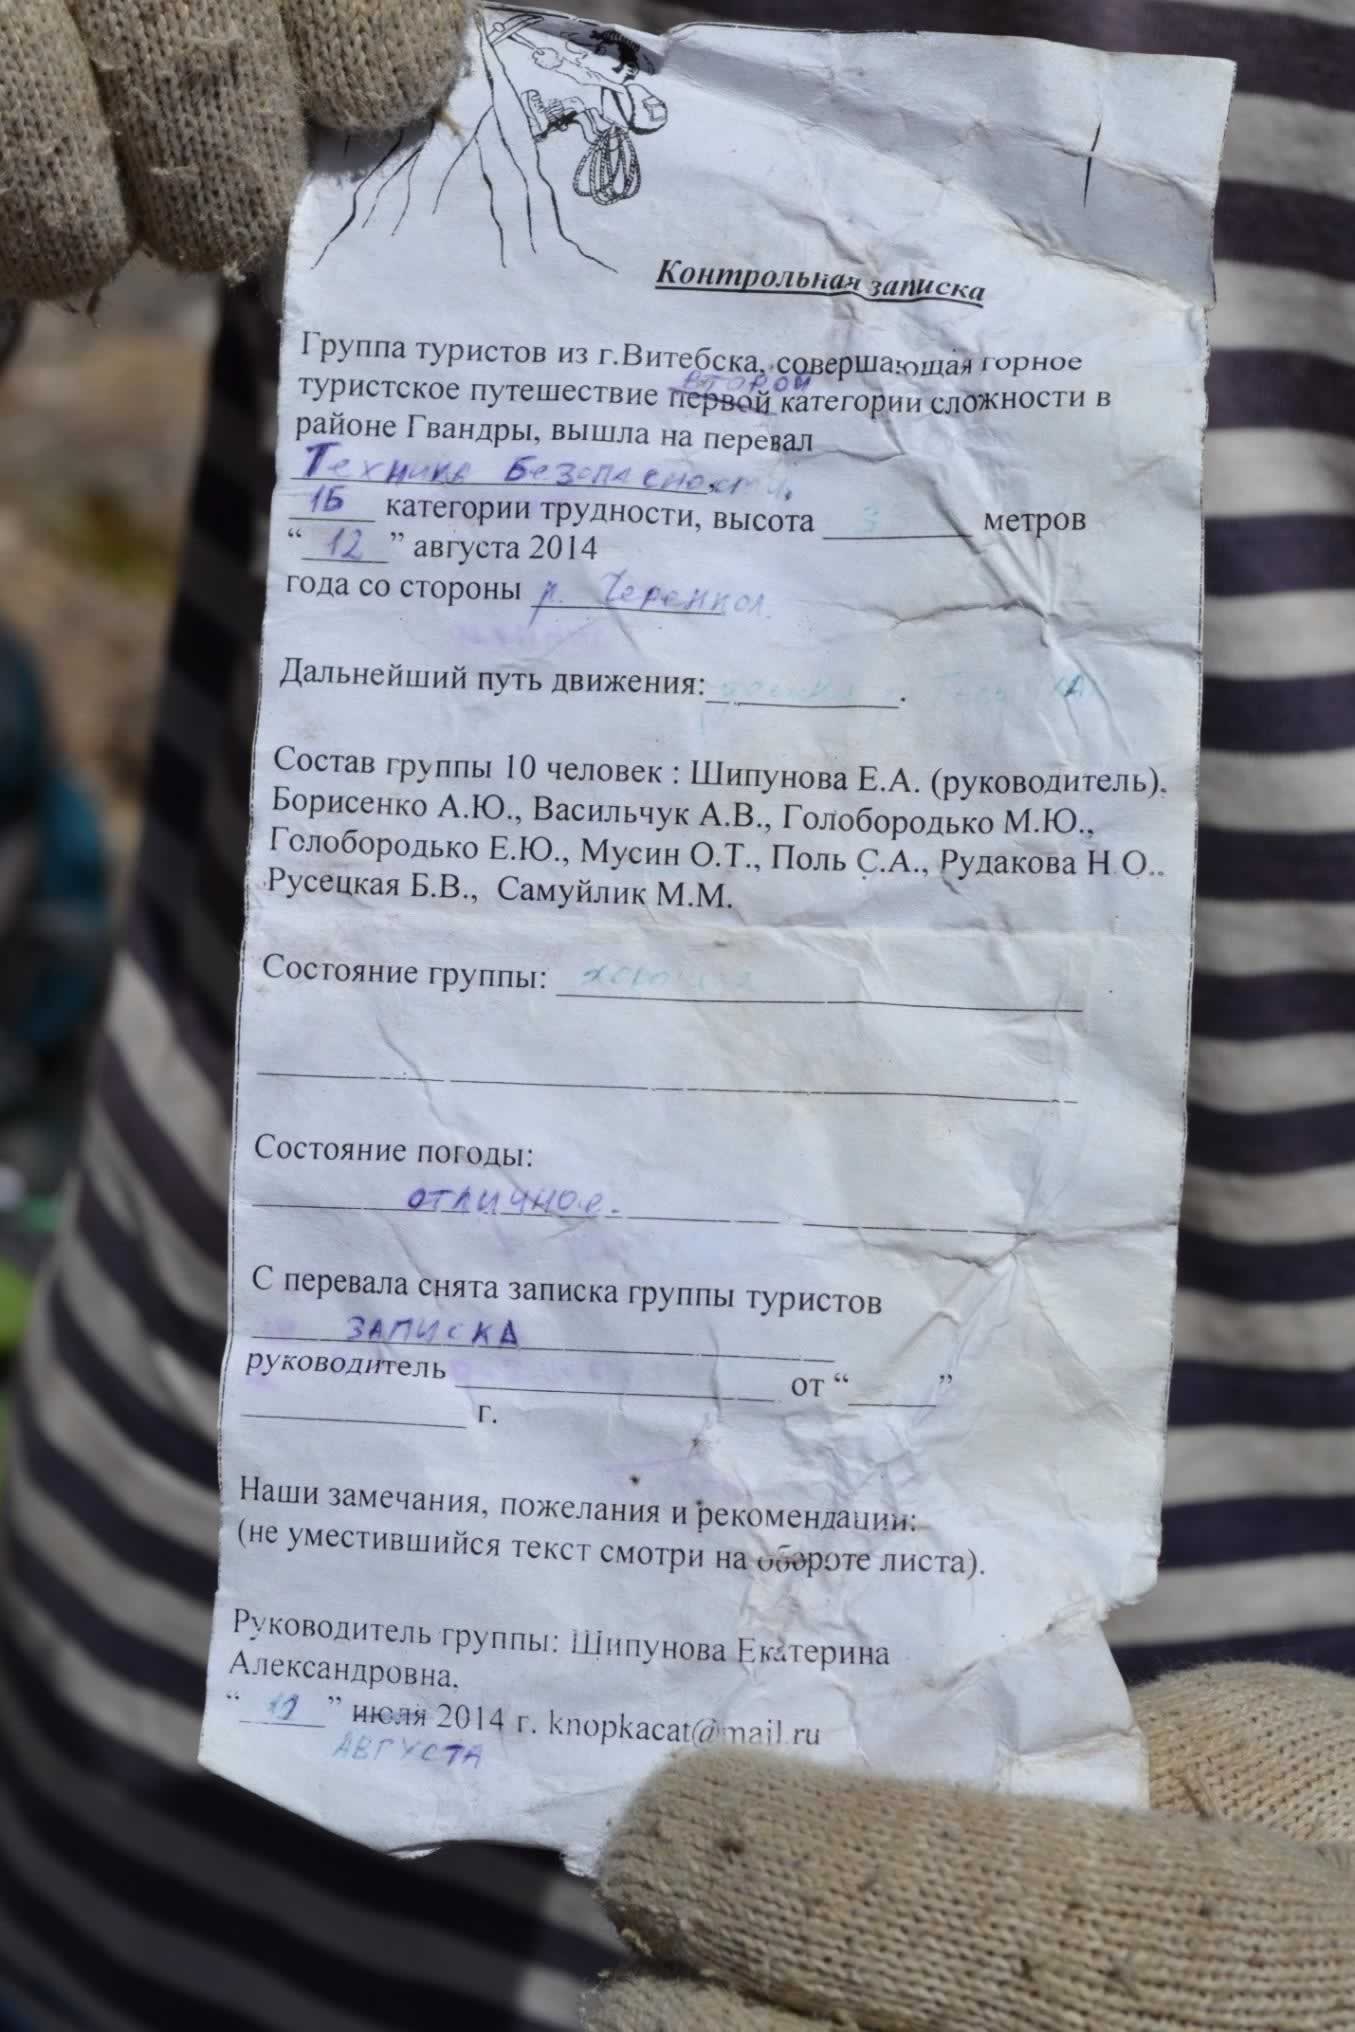 Контрольная записка
Группа туристов из г.Витебска, совершающая горное
второй
туристское путешествие первой категории сложности в
районе Гвандры, вышла на перевал
Техника Безопасности.
1Б категории трудности, высота 3 метров
“ 12 ” августа 2014
года со стороны р. Черенкол.
Дальнейший путь движения: .
Состав группы 10 человек : Шипунова Е.А. (руководитель),
Борисенко А.Ю., Васильчук А.В., Голобородько М.Ю.,
Голобородько Е.Ю., Мусин О.Т., Поль С.А., Рудакова Н.О.,
Русецкая Б.В., Самуйлик М.М.
Состояние группы: хорошее
Состояние погоды:
отличное.
С перевала снята записка группы туристов
записка
руководитель от “ ”
г.
Наши замечания, пожелания и рекомендации:
(не уместившийся текст смотри на обороте листа).
Руководитель группы: Шипунова Екатерина
Александровна,
“ 12 ” июля 2014 г. knopkacat@mail.ru
АВГУСТА